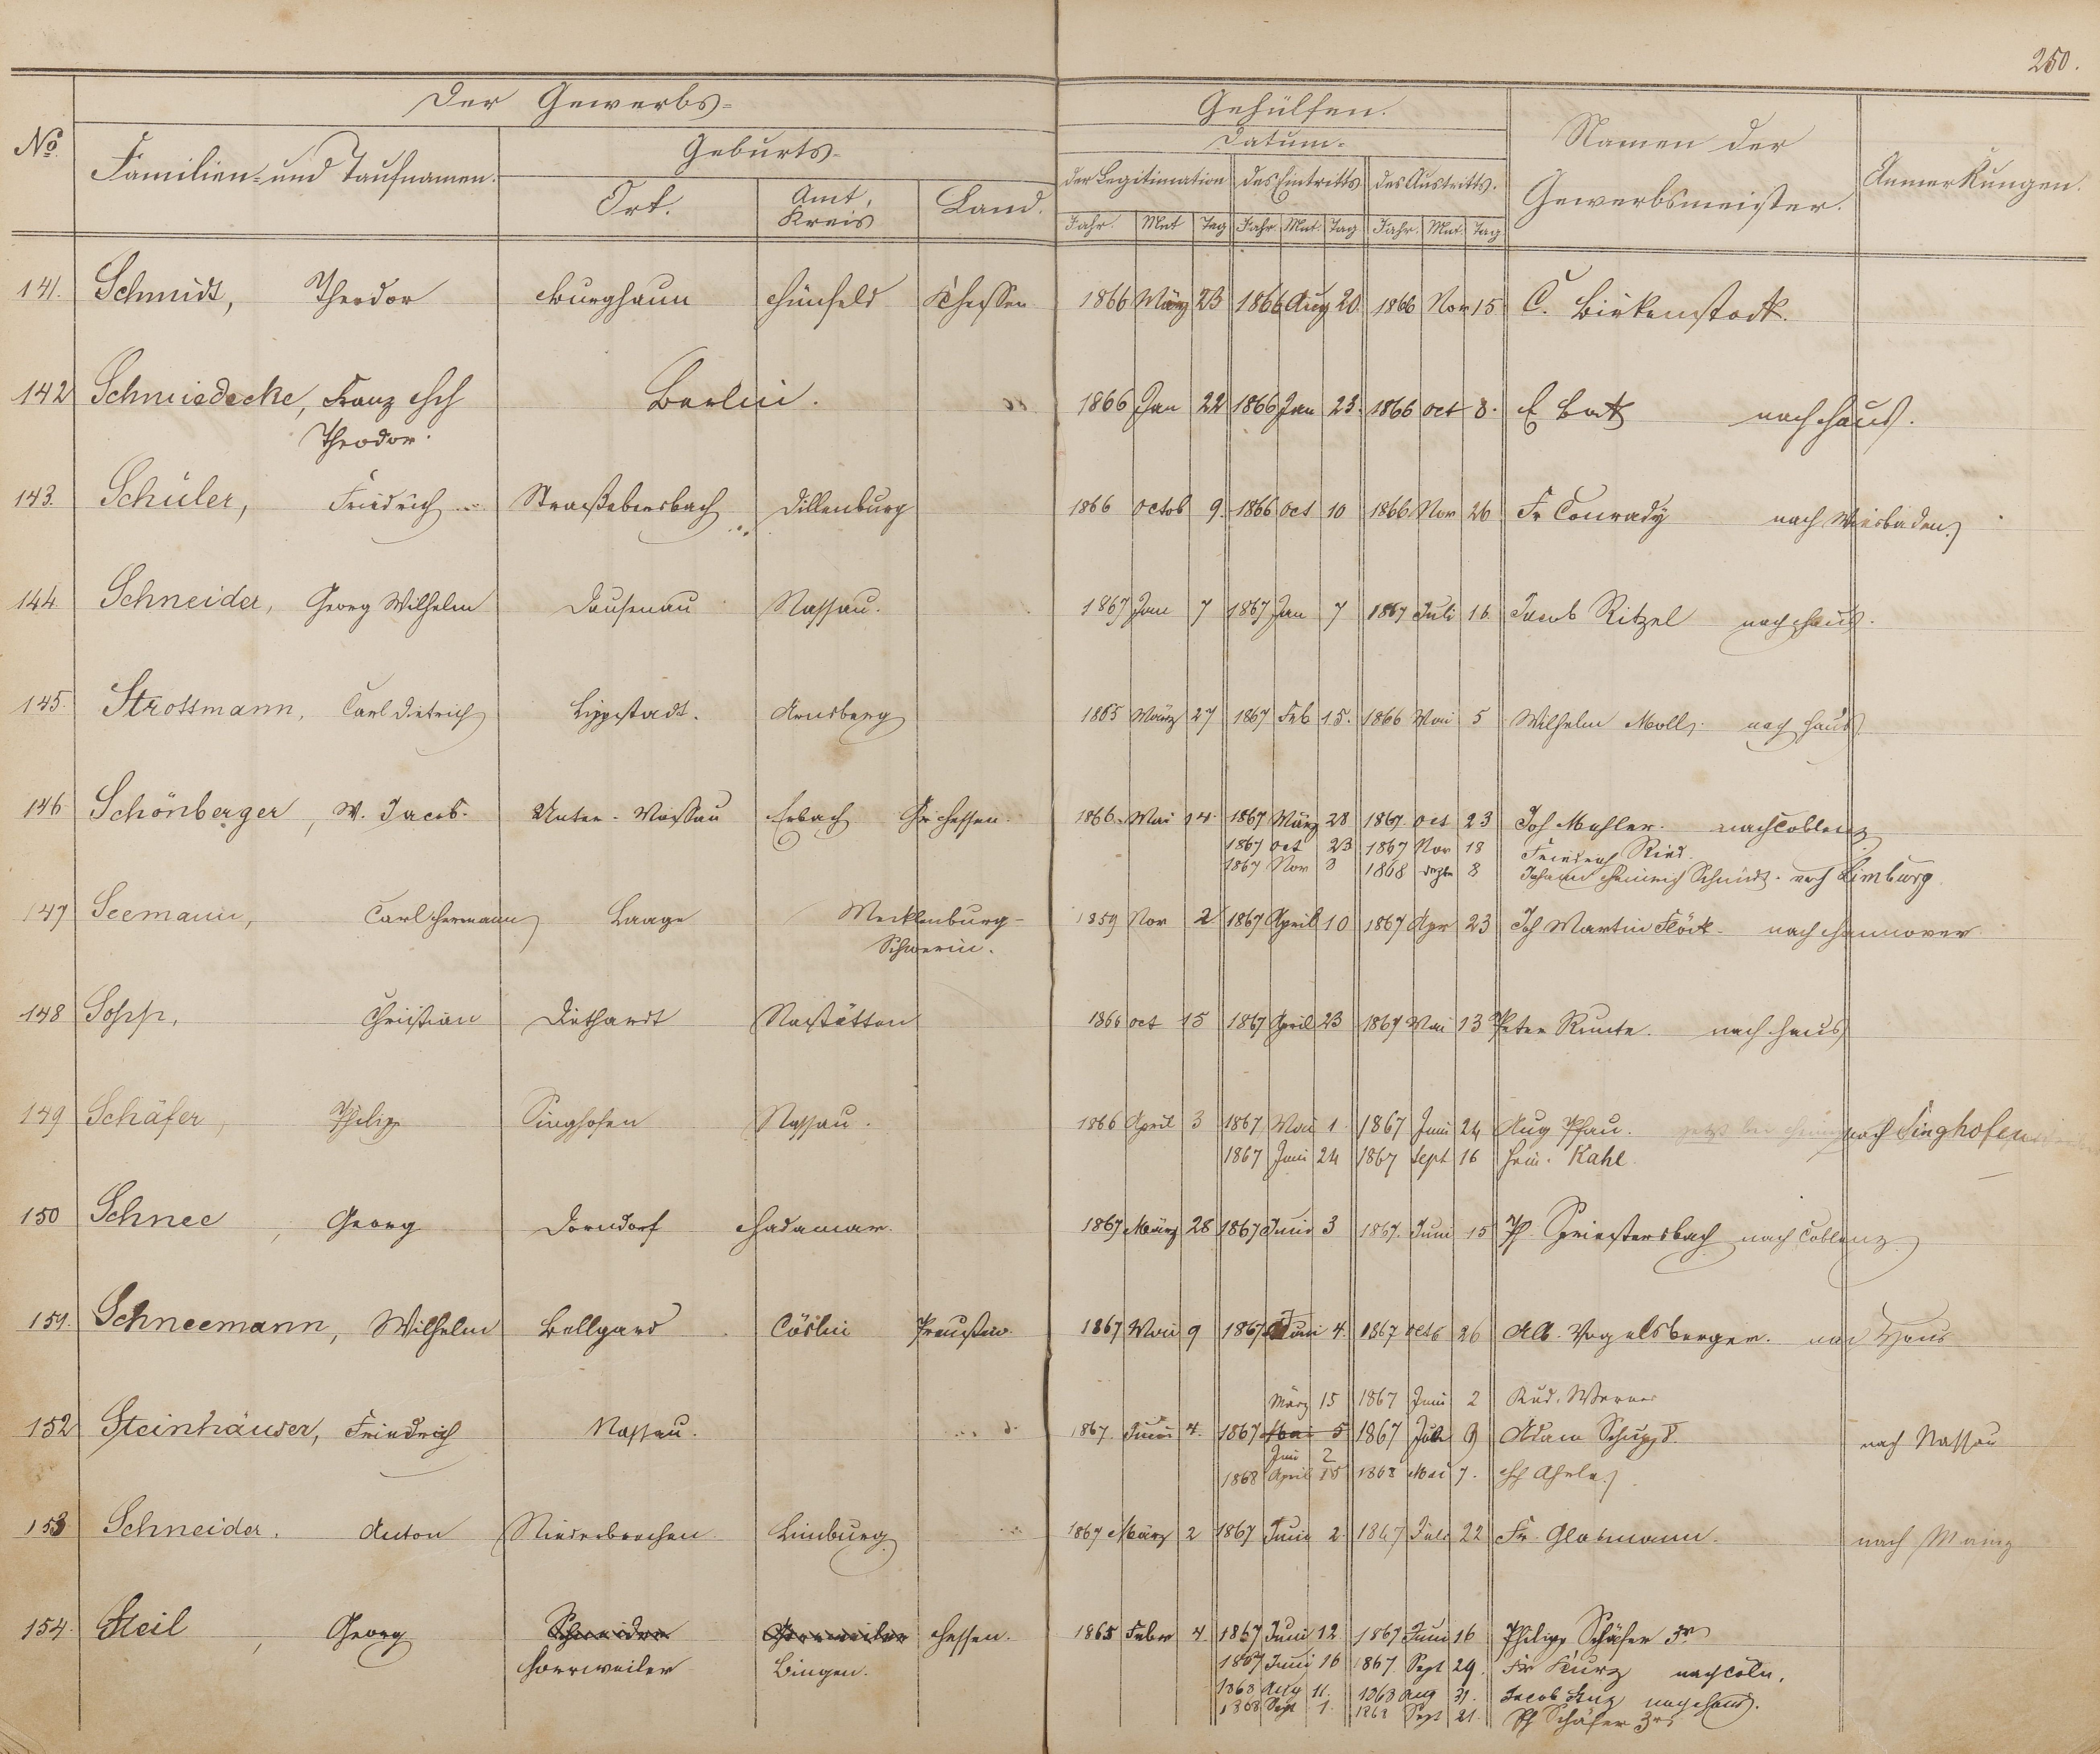 250.
Der Gewerbs- Gehülfen.
No. Familien- und Taufnamen. Geburts- Datum. Namen der Gewerbsmeister. Anmerkungen.
Ort. Amt, Kreis Land. der Legitimation des Eintritts des Austritts.
Jahr. Mnt Tag Jahr. Mnt. Tag Jahr. Mnt. Tag
141. Schmidt, Theodor Burghaun Hünfeld K Hessen 1866 März 23 1866 Aug 20. 1866 Nov 15 C. Birkenstock.
142 Schmiedecke, Franz Berlin. 1866 Jan 22 1866 Jan 23. 1866 Oct 8. nach Haus.
Theodor.
143. Schüler, Friedrich Straßebersbach Dillenburg 1866 Octob 9. 1866 Oct 10 1866 Nov 26 Fr Conrady nach Wiesbaden.
144. Schneider, Georg Wilhelm Dausenau Nassau. 1867 Jan 7 1867 Jan 7 1867 Juli 16. Jacob Ritzel nach Haus.
145. Strottmann, Carl Dietrich Lippstadt. Arnsberg 1865 März 27 1867 Feb 15. 1866 Mai 5 Wilhelm Moll. nach Haus
146 Schönberger, W. Jacob. Unter-Mossau Erbach Gr Hessen. 1866 Mai 14. 1867 März 28 1867 Oct 23 Joh Mahler. nach Coblenz
1867 Oct 23 1867 Nov 18 Friedrich Ried.
1867 Nov 8 1868 Dezbr 8 Johann Heinrich Schmidt. nach Limburg
147 Seemann, Carl Hermann Laage Mecklenburg- 1859 Nov 2 1867 April 10 1867 Apr 23 Joh Martin Flöck nach Hannover
Schwerin.
148 Sopp, Christian Diethardt Nastätten 1866 Oct 15 1867 April 23 1867 Mai 13 Peter Runte. nach Haus
149 Schäfer, Philipp Singhofen Nassau. 1866 April 3 1867 Mai 1. 1867 Juni 24 Aug Pfau. nach Singhofen
1867 Juni 24 1867 Sept 16 Hein. Kahl
150 Schnee, Georg Dorndorf Hadamar. 1867 März 28 1867 Juni 3 1867. Juni 15 Ph. Spriestersbach nach Coblenz.
151. Schneemann, Wilhelm Bellgard Cöslin Preußen. 1867 Mai 9 1867 Juni 4. 1867 Octb 26 Alb. Vogelsberger. nach Haus
März 15 1867 Juni 2 Rud. Werner
152 Steinhäuser, Friedrich Nassau. 1867. Juni 4. 1867 Mai 5 1867 Juli 9 Adam Schupp nach Nassau
Juni 2
1868 April 15 1868 Mai 7.
153 Schneider. Anton Niederbrechen Limburg 1867 März 2 1867 Juni 2. 1867 Juli 22 Fr. Glasmann. nach Mainz
154. Steil, Georg Schneider Horrweiler Hessen. 1865 Febr 4 1867 Juni 12 1867 Juni 16 Philipp Schäfer
Horrweiler Bingen. 1867 Juni 16 1867 Sept 29. Fr Kurz nach Cöln.
1868 Aug 11. 1868 Aug 31. Jacob nach Haus.
1868 Sept 1. 1868 Sept 21. Ph Schäfer